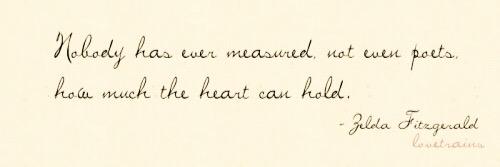 Nobody has ever measured, not even poets,
how much the heart can hold.
- Zelda Fitzgerald
lovetrains